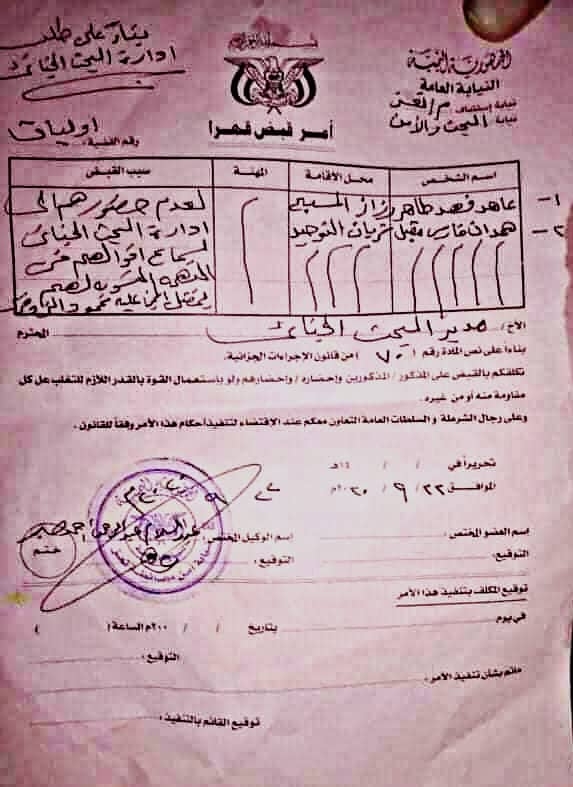 بناءً على طلب
ادارة البحث الجنائي
الجمهورية اليمنية
النيابة العامة
نيابة إستئناف م/تعز
نيابة البحث والأمن
أمر قبض قهرا
اوليات
رقم القضية:
اسم الشخص محل الأقامة المهنة سبب القبض
١- عاهد فهد طاهر لعدم حضورهم الى
٢- همدان فارس مقبل ادارة البحث الجنائي
لسماع اقوالهم في
التهمة المنسوبة لهم
الأخ / مدير البحث الجنائي المحترم
بناءاً على نص المادة رقم ( ٧٠ ) من قانون الإجراءات الجزائية.
نكلفكم بالقبض على المذكور / المذكورين وإحضاره / وإحضارهم ولو باستعمال القوة بالقدر اللازم للتغلب على كل
مقاومة منه أو من غيره.
وعلى رجال الشرطة و السلطات العامة التعاون معكم عند الإقتضاء لتنفيذ أحكام هذا الأمر وفقاً للقانون.
تحريراً في / / ١٤هـ
الموافق ٢٢/ ٩ / ٢٠٢٠م
إسم العضو المختص: إسم الوكيل المختص: عبدالسلام
التوقيع: التوقيع:
ختم
توقيع المكلف بتنفيذ هذا الأمر
في يوم بتاريخ / / ٢٠٠م الساعة ( )
التوقيع:
ماتم بشأن تنفيذ الأمر:
توقيع القائم بالتنفيذ: